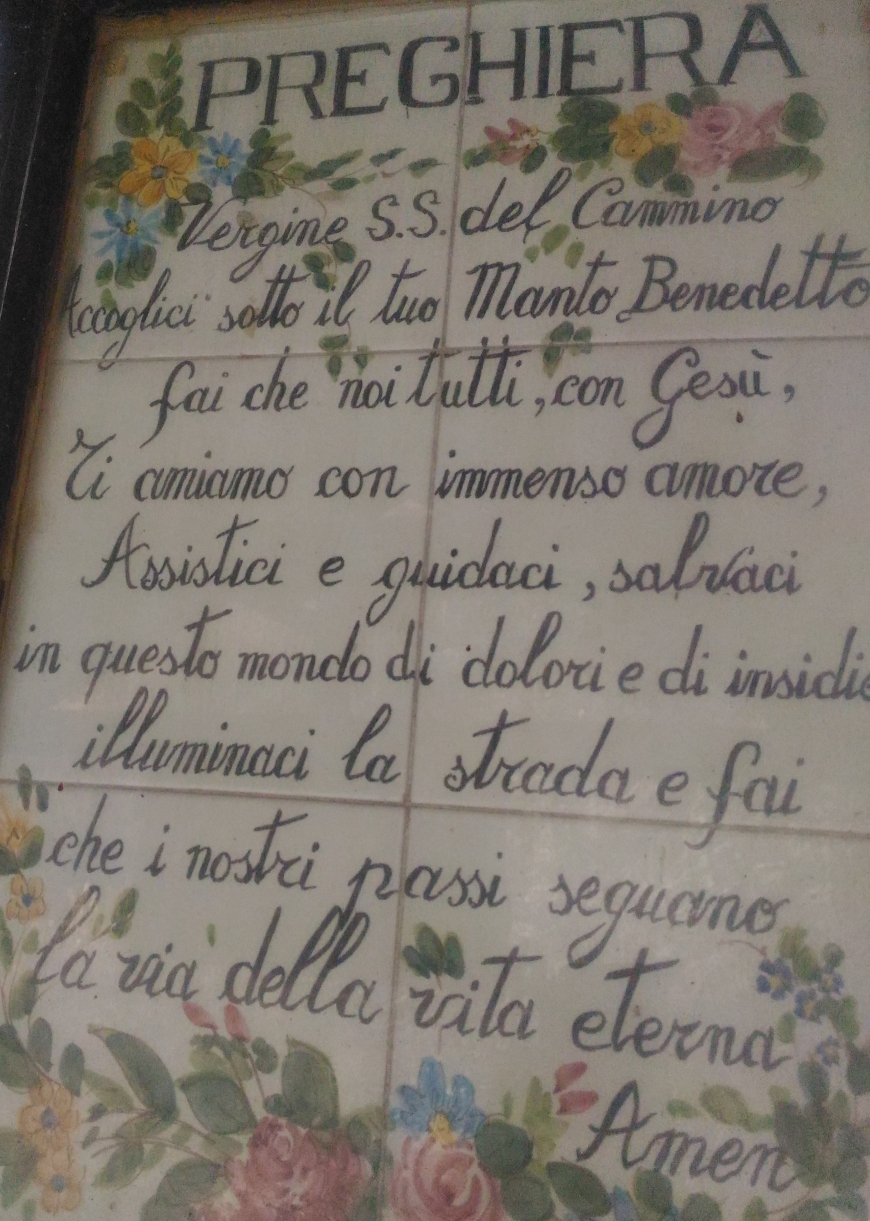 PREGHIERA
Vergine S.S. del Cammino
Accoglici sotto il tuo Manto Benedetto
fai che noi tutti, con Gesù,
Ti amiamo con immenso amore,
Assistici e guidaci, salvaci
in questo mondo di dolori e di insidie
illuminaci la strada e fai
che i nostri passi seguano
la via della vita eterna
Amen